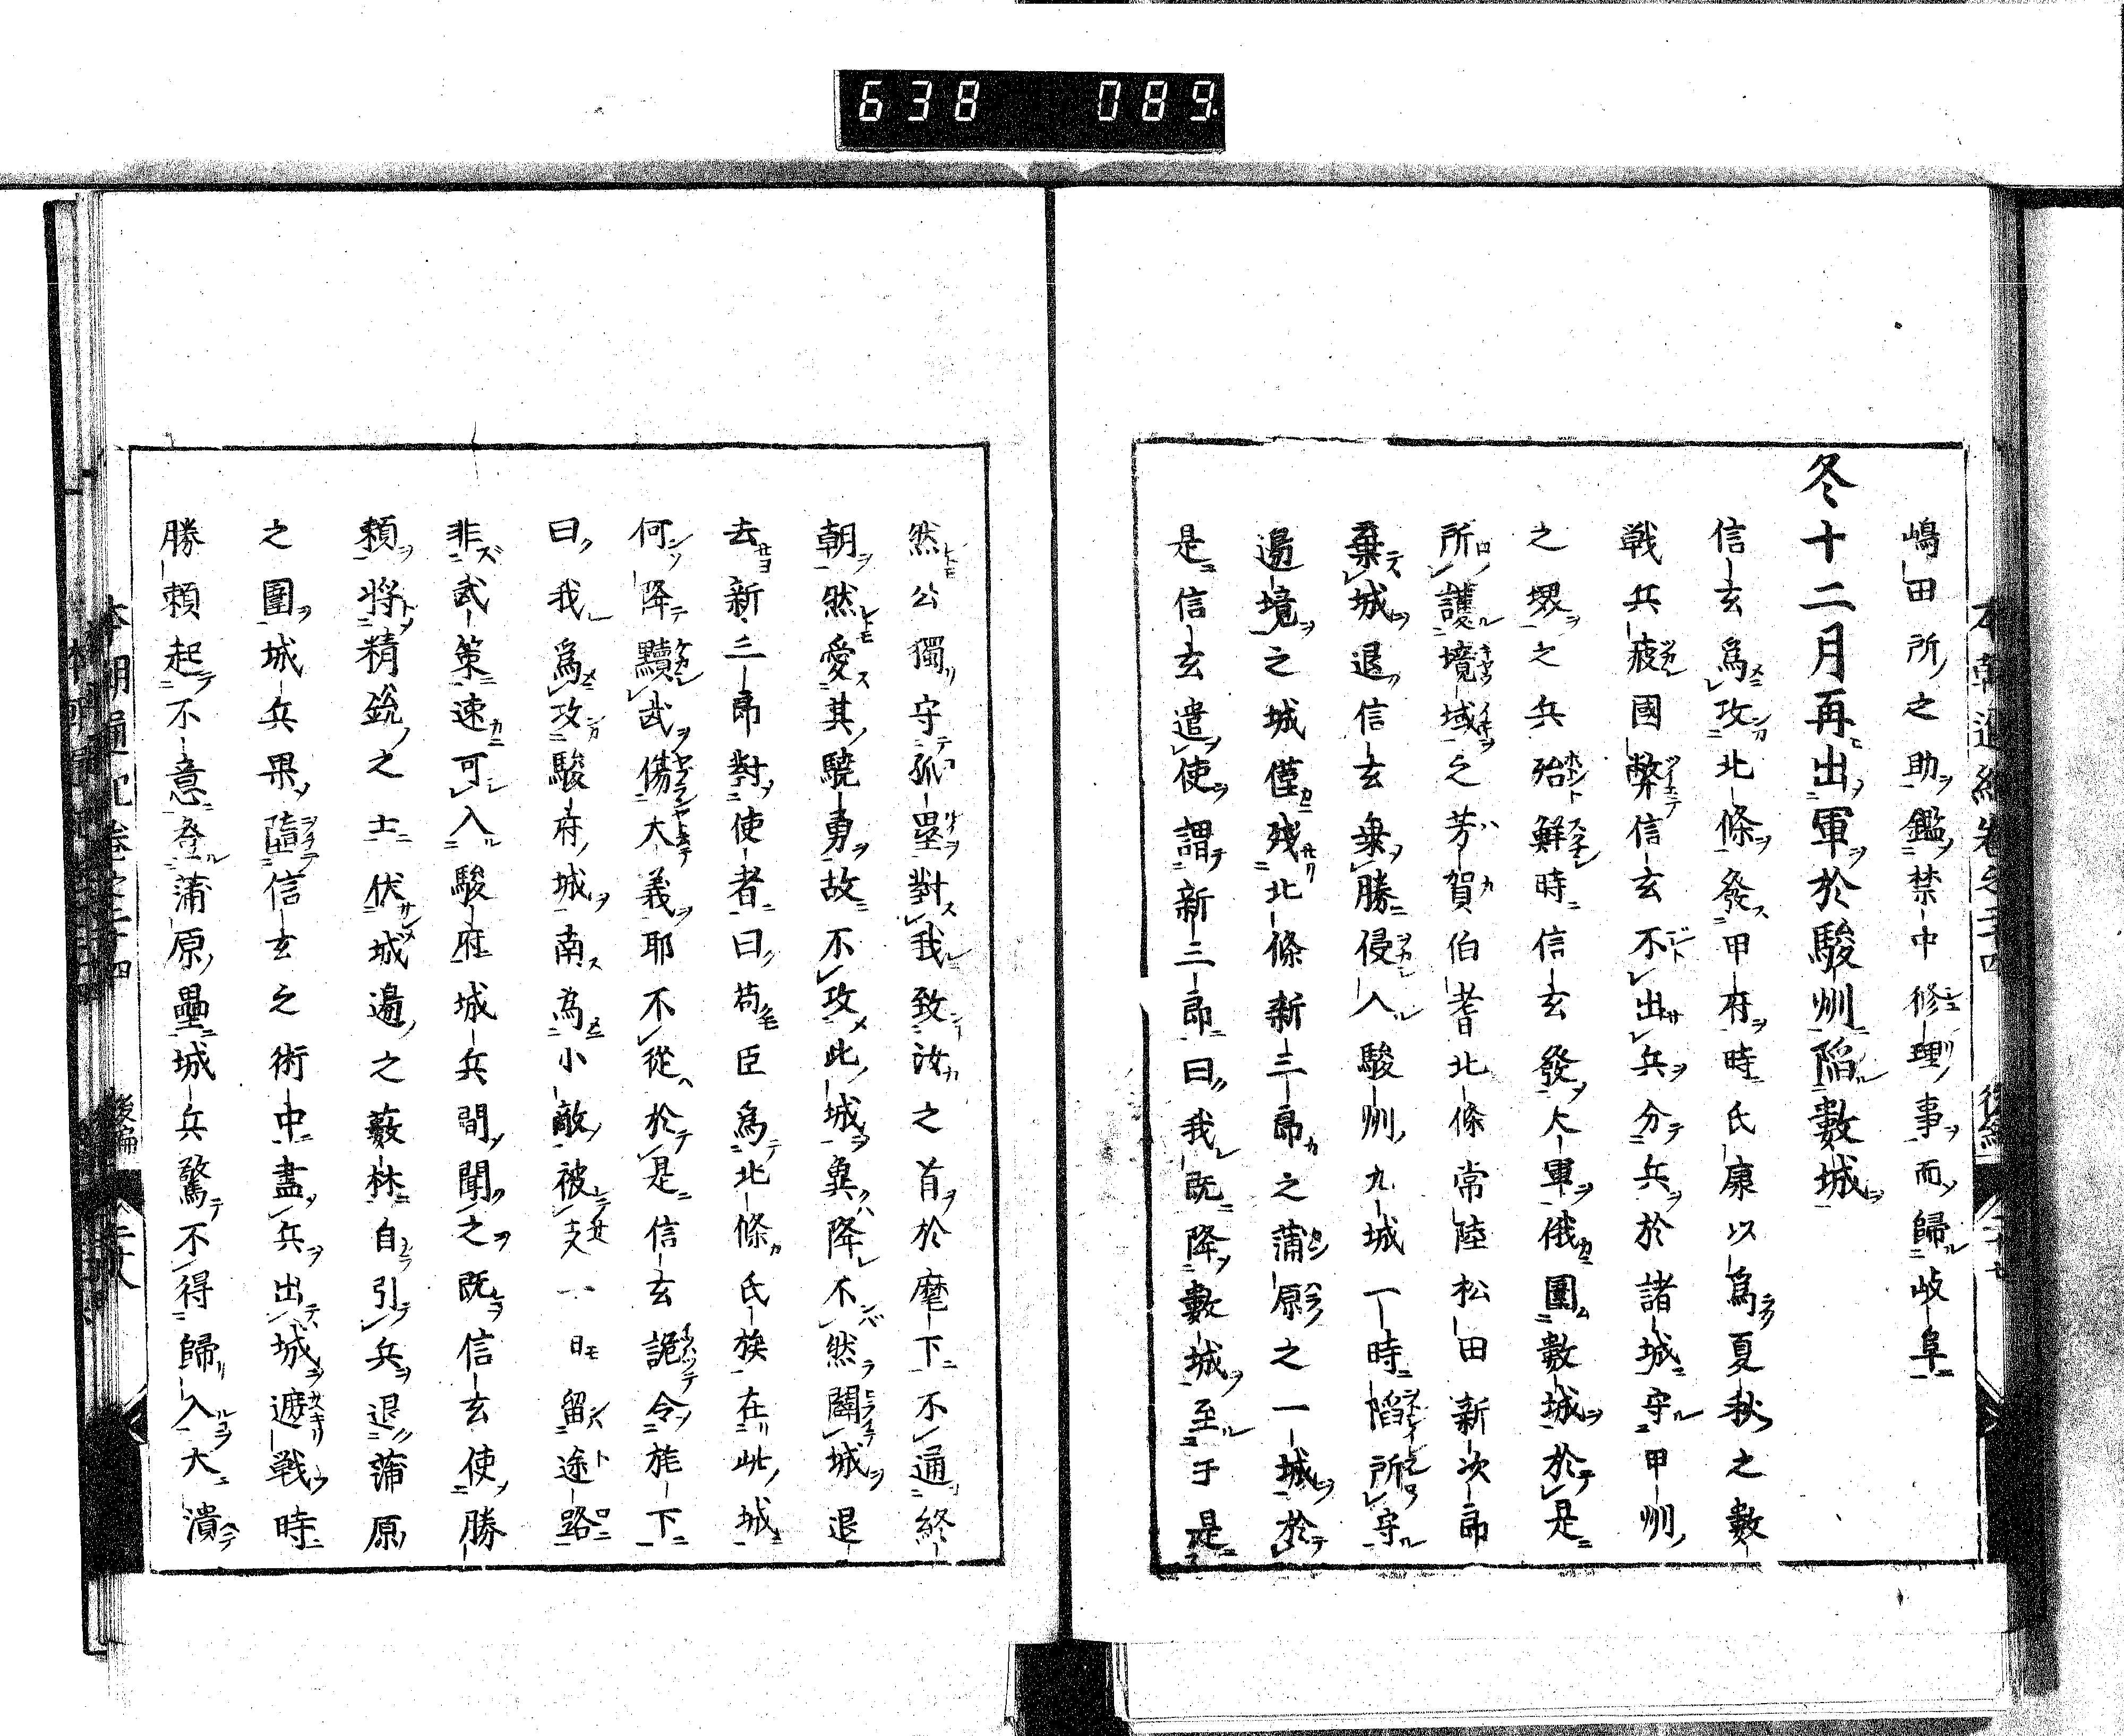 638 089
嶋田所之助鑑禁中修理事而歸岐阜
冬十二月再出軍於駿州陷數城
信玄爲攻北條發甲府時氏康以爲夏秋之數
戦兵疲國弊信玄不出兵分兵於諸城守甲州
之堺之兵殆鮮時信玄發大軍俄圍數城於是
所護境域之芳賀伯耆北條常陸松田新次郎
棄城退信玄乗勝侵入駿州九城一時陷所守
邊境之城僅残北條新三郎之蒲原之一城於
是信玄遣使謂新三郎曰我既降數城至于是
然公獨守孤壘對我致汝之首於麾下不通終
朝然愛其驍勇故不攻此城冀降不然闢城退
去新三郎對使者曰苟臣爲北條氏族在此城
何降黷武傷大義耶不從於是信玄詭令旄下
曰我爲攻駿府城南為小敵被支一日留途路
非武策速可入駿府城兵間聞之既信玄使勝
頼将精銳之士伏城邊之藪林自引兵退蒲原
之圍城兵果墮信玄之術中盡兵出城遮戦時
勝頼起不意登蒲原壘城兵驚不得歸入大潰